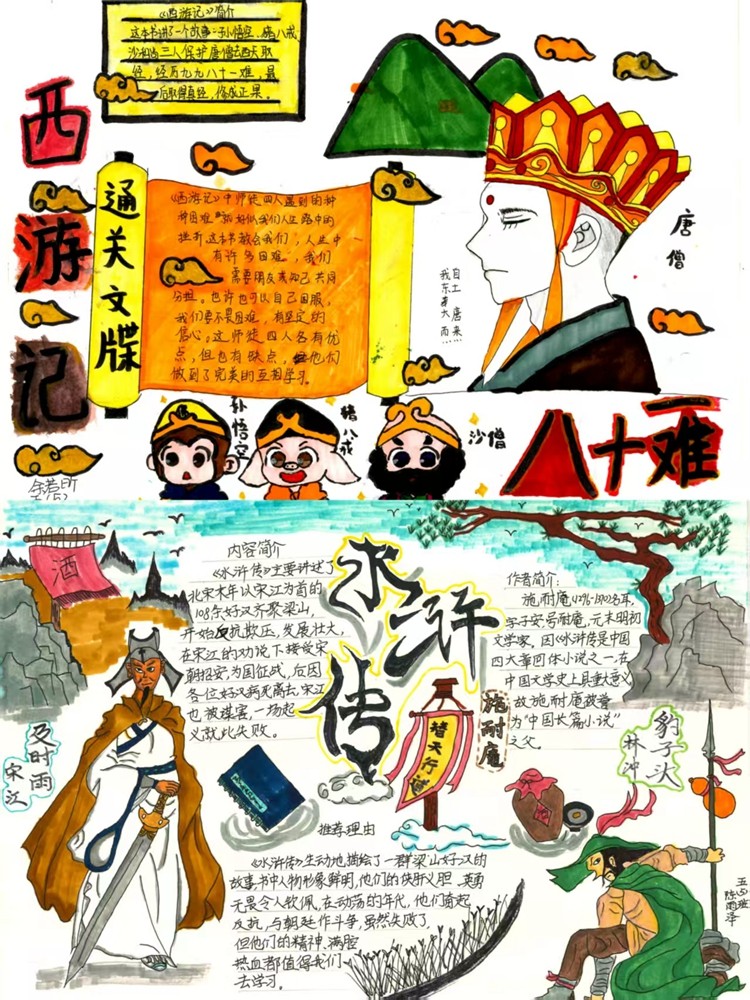 《西游记》简介
这本书讲了一个故事：孙悟空、猪八戒
沙和尚三人保护唐僧去西天取
经，经历九九八十一难，最
后取得真经，修成正果。
西游记
通关文牒
《西游记》中师徒四人遇到的种
种困难 就好似我们人生路中的
挫折，这本书教会我们，人生中
有许多困难，我们
需要朋友来和自己共同
分担。也许也可以自己困服，
我们要不畏困难，有坚定的
信心。这师徒四人各有优
点，但也有缺点，他们
做到了完美的互相学习。
唐僧
自土唐来
我东大而
孙悟空
猪八戒
沙僧
八十一难
酒
内容简介
《水浒传》主要讲述了
北宋末年以宋江为首的
108条好汉齐聚梁山，
开始反抗欺压，发展壮大，
在宋江的劝说下接受宋
朝招安，为国征战，后因
各位好汉病死离去，宋江
也被谋害，一场起
义就此失败。
水浒传
作者简介：
施耐庵
字子安号耐庵，元末明初
文学家，因《水浒传》是中国
四大章回体小说之一，在
中国文学史上具重大意义
故施耐庵被誉
为“中国长篇小说”
之父。
施耐庵
替天行道
及时雨
宋江
豹子头
林冲
推荐理由
《水浒传》生动地描绘了一群梁山好汉的
故事，书中人物形象鲜明，他们的侠肝义胆、英勇
无畏令人钦佩，在动荡的年代，他们奋起
反抗，与朝廷作斗争，虽然失败了，
但他们的精神，满腔
热血都值得我们
去学习。
陈雨泽